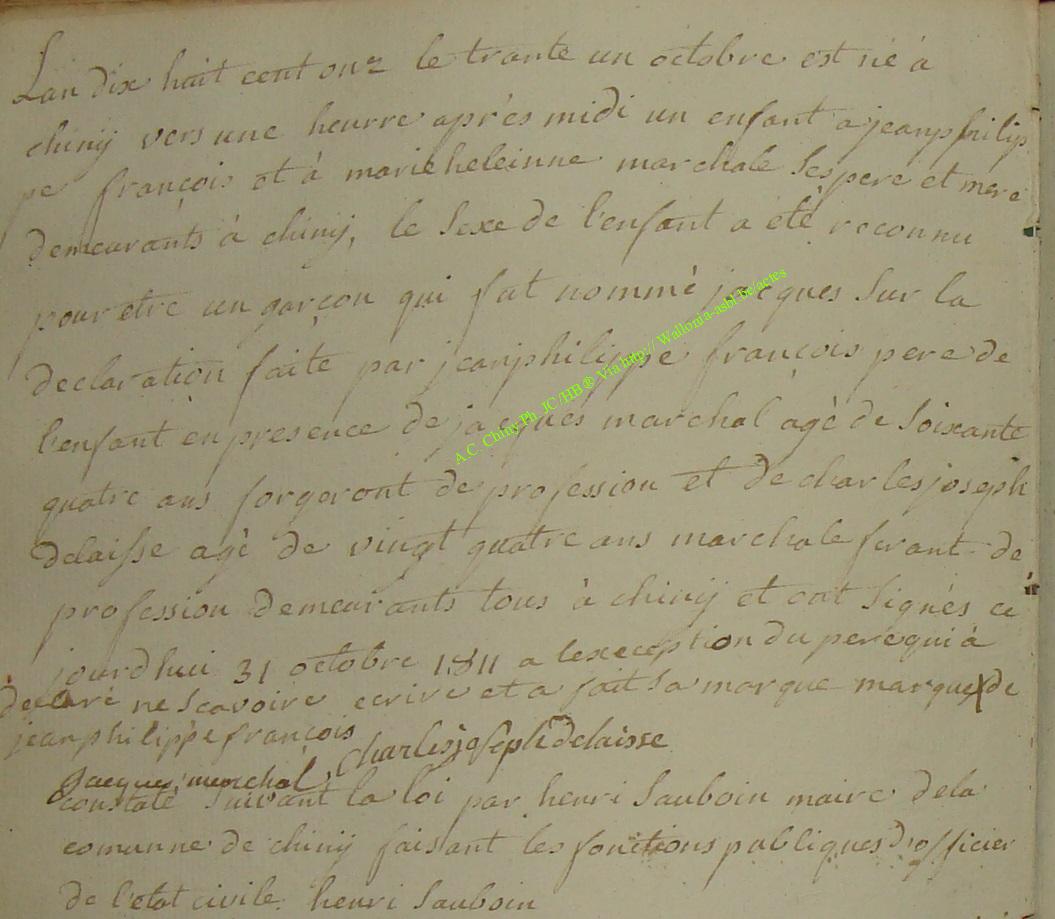 Lan dix huit cent onz le trante un octobre est né à
chinÿ vers une heurre après midi un enfant a jeanphilip
pe françois et à marieheleinne marchale ses pere et mere
demeurants à chinÿ, le sexe de l'enfant a été reconnu
pour etre un garçon qui fut nommé jacques sur la
declaration faite par jeanphilippe françois pere de
l'enfant en presence de jacques marchal agè de soixante
quatre ans forgeront de profession et de charlesjoseph
delaisse agè de vingt quatre ans marchale ferant de
profession demeurants tous à chinÿ et ont signés ce
jourdhui 31 octobre 1811 a lexception du pere qui à
declaré ne scavoire ecrire et a fait sa marque marque X de
jeanphilippe françois
jacques marchal Charlesjoseph delaisse
constaté suivant la loi par henri Sauboin maire dela
comunne de chinÿ faisant les fonctions publiques d'officier
de l'etat civile. henri Sauboin
A.C. Chiny Ph. JC/HB® Via http:// Wallonia-asbl.be/actes